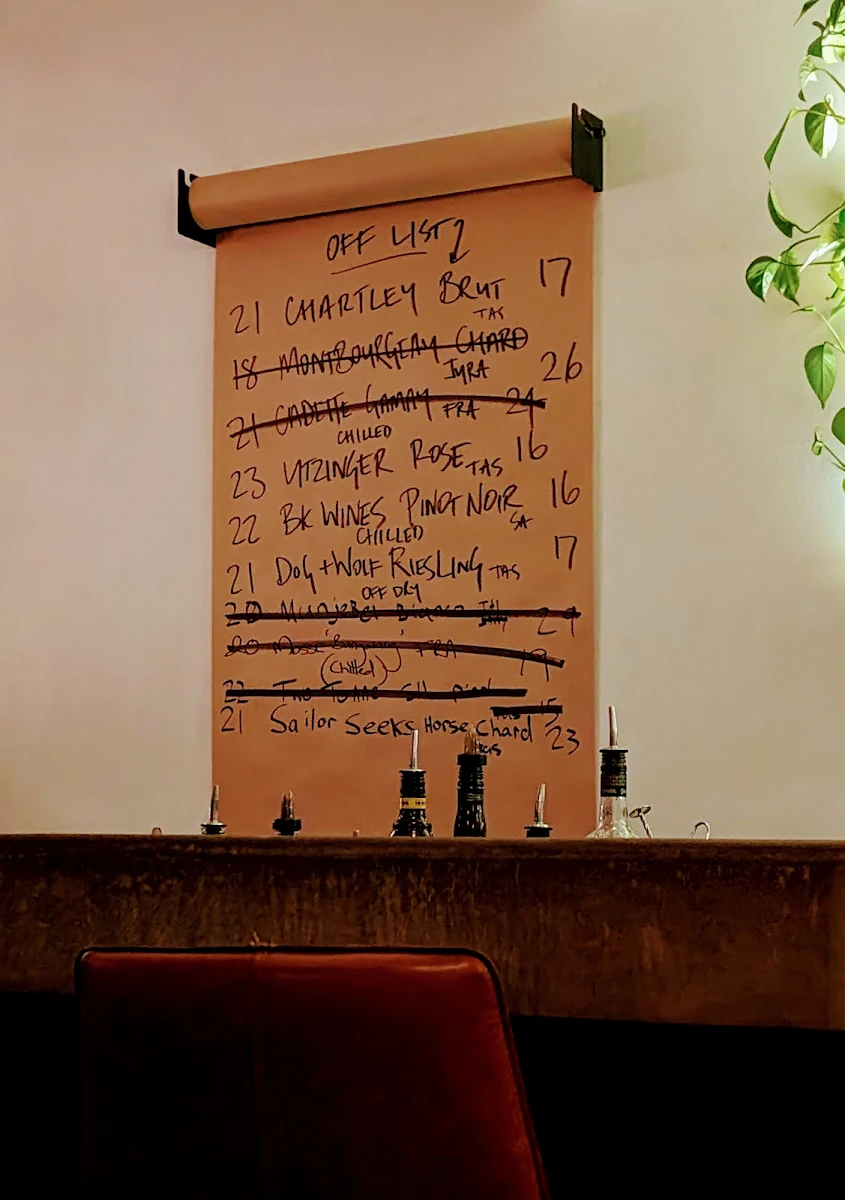 OFF LIST
21 CHARTLEY BRUT 17
TAS
18 MONTBOURGEAU CHARD
JURA 26
21 CADETTE GAMAY FRA 24
CHILLED
23 UTZINGER ROSE TAS 16
22 BK WINES PINOT NOIR 16
CHILLED SA
21 DOG + WOLF RIESLING TAS 17
OFF DRY
20 MunjeBel Bianco 29
20 Mosse FRA 19
(Chilled)
22
15
21 Sailor Seeks Horse Chard 23